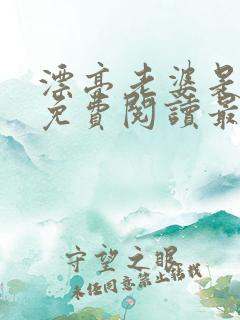 漂亮老婆杲
免費閱讀最
守望之眼
未经同意禁止转载